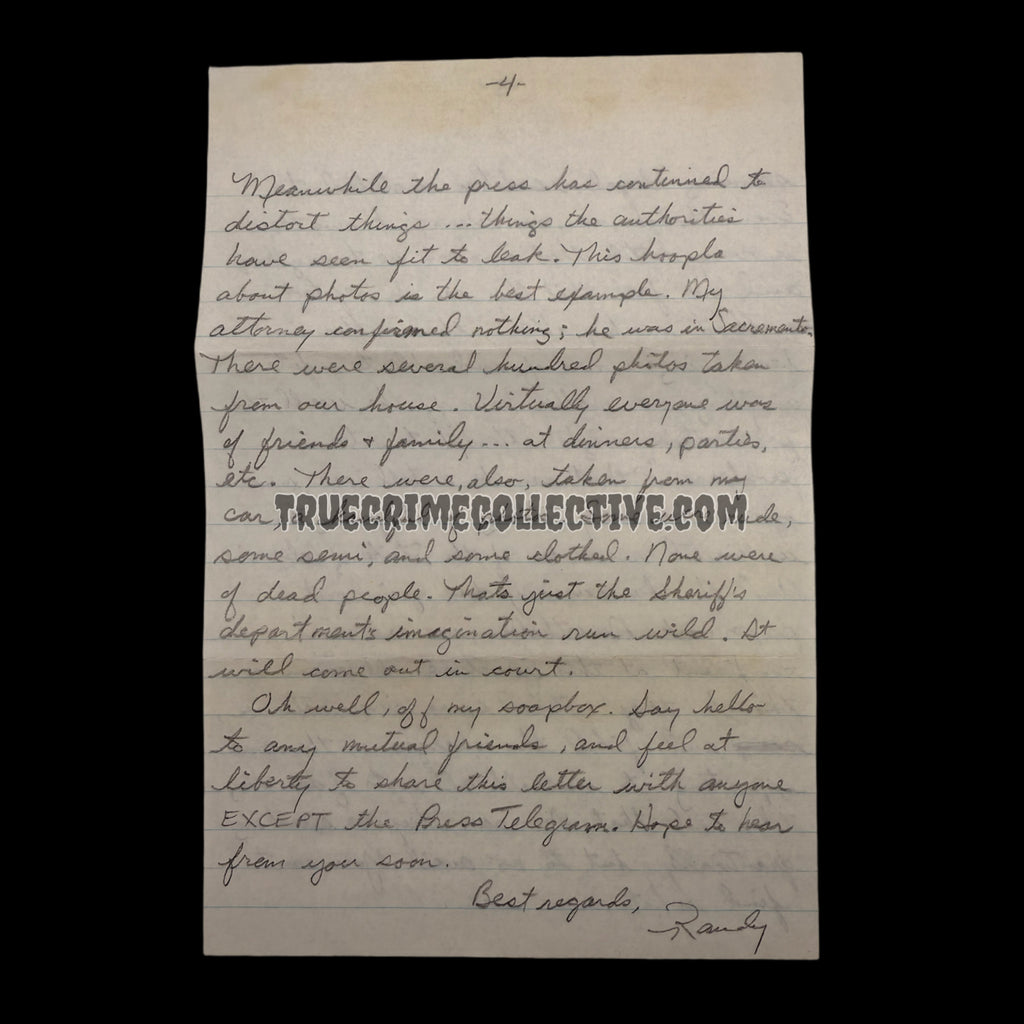 -4-
Meanwhile the press has continued to
distort things ... things the authorities
have seen fit to leak. This hoopla
about photos is the best example. My
attorney confirmed nothing; he was in Sacremento.
There were several hundred photos taken
from our house. Virtually everyone was
of friends & family... at dinners, parties,
etc. There were, also, taken from my
TRUECRIMECOLLECTIVE.COM
car, a handful of photos. Some were nude,
some semi, and some clothed. None were
of dead people. Thats just the Sheriff's
department's imagination run wild. It
will come out in court.
Oh well, off my soapbox. Say hello
to any mutual friends, and feel at
liberty to share this letter with anyone
EXCEPT the Press Telegram. Hope to hear
from you soon.
Best regards,
Randy